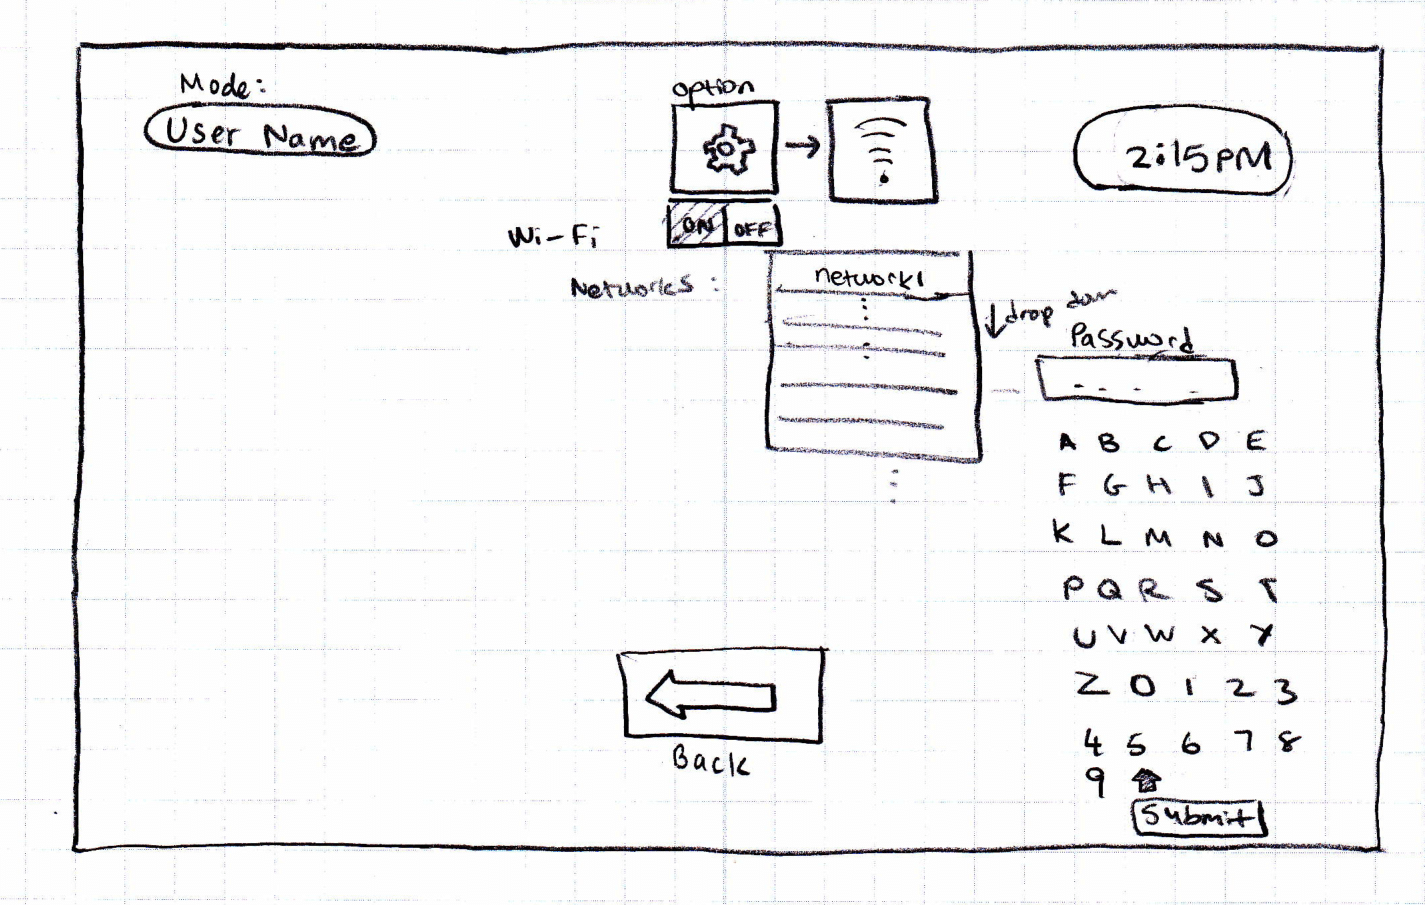 Mode:
User Name
option
2:15PM
Wi-Fi
ON OFF
Networks:
network1
drop down
Password
A B C D E
F G H I J
K L M N O
P Q R S T
U V W X Y
Z 0 1 2 3
4 5 6 7 8
9
Submit
Back